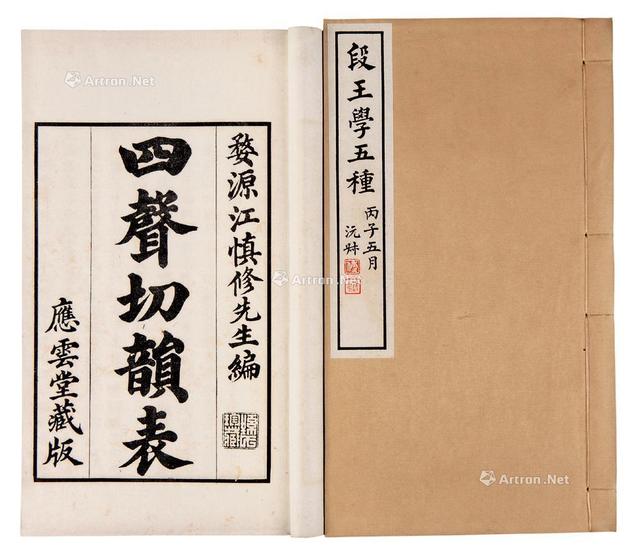 段王學五種
丙子五月
沅叔
婺源江慎修先生編
四聲切韻表
應雲堂藏版
Artron.Net
Artron.Net
Artron.Net